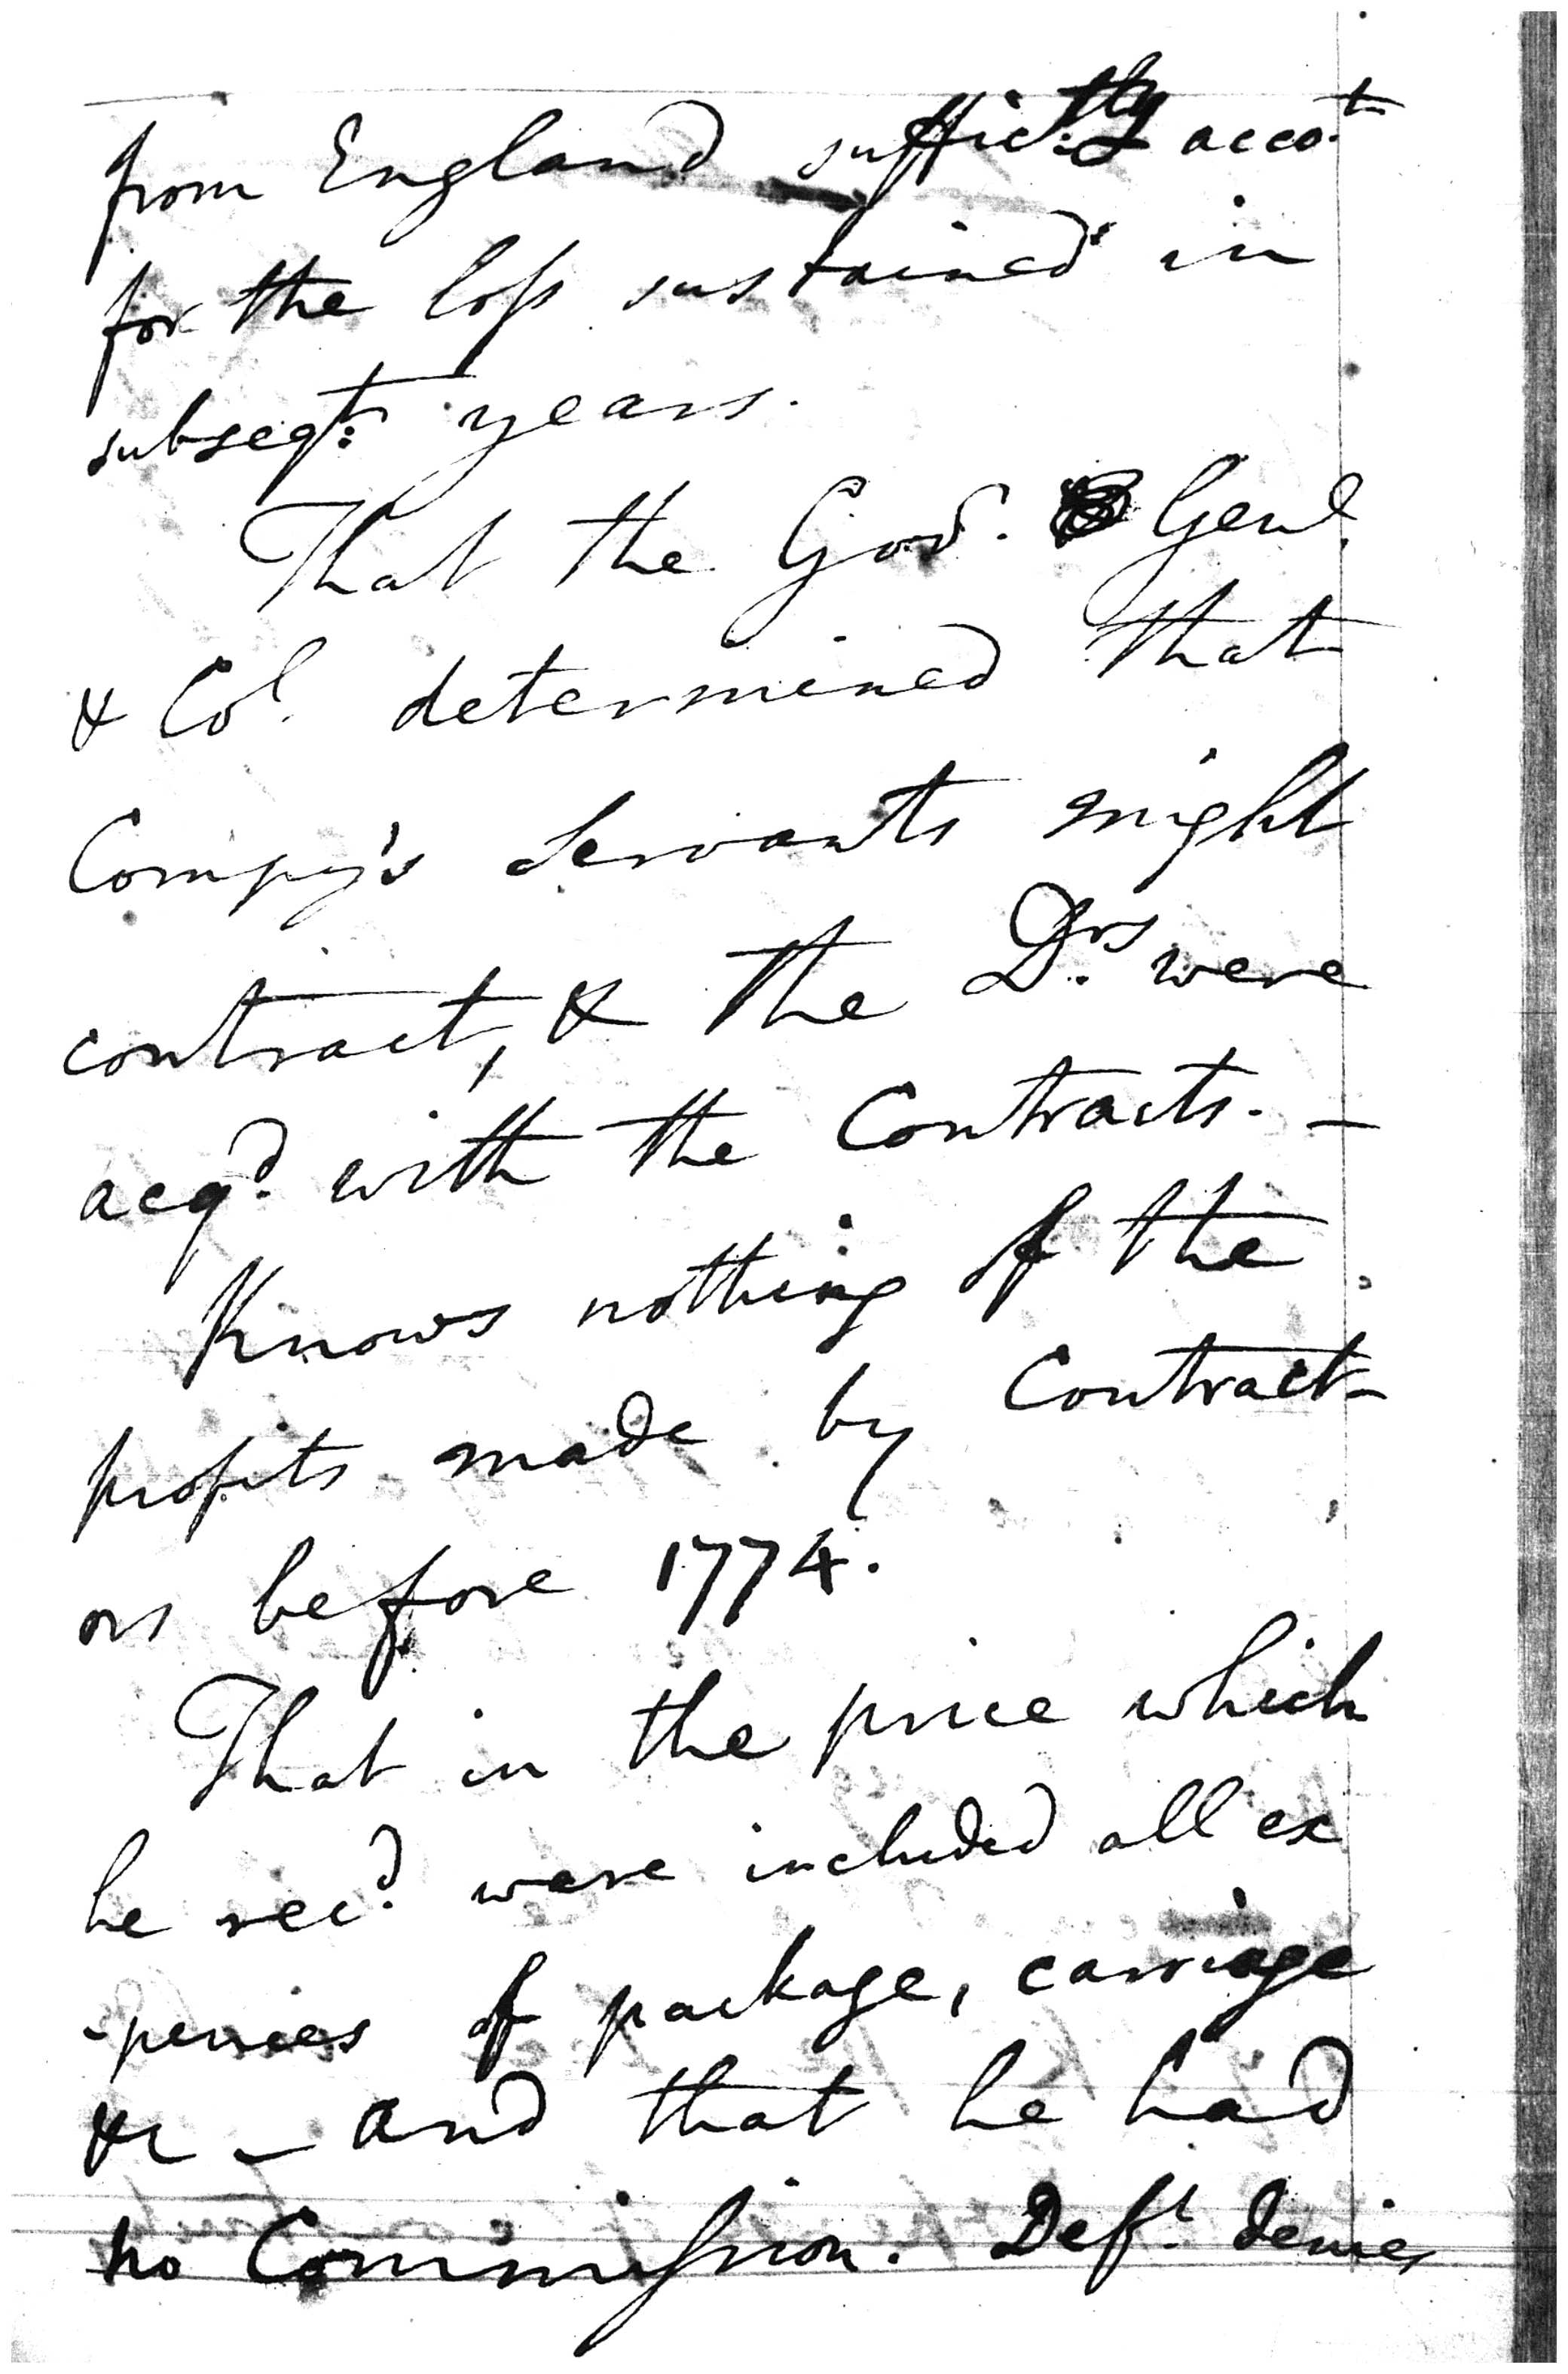 from England suffic:tly acco.t
for the loss sustained in
subseq:t years.
That the Gov.r Genl.
& Col. determined that
Compy's Servants might
contract, & the D.rs were
acq.d with the Contracts. —
Knows nothing of the
profits made by Contract-
ors before 1774.
That in the price which
he rec.d were included all ex
-pences of package, carriage
&c — and that he had
no Commission. Def.t denies